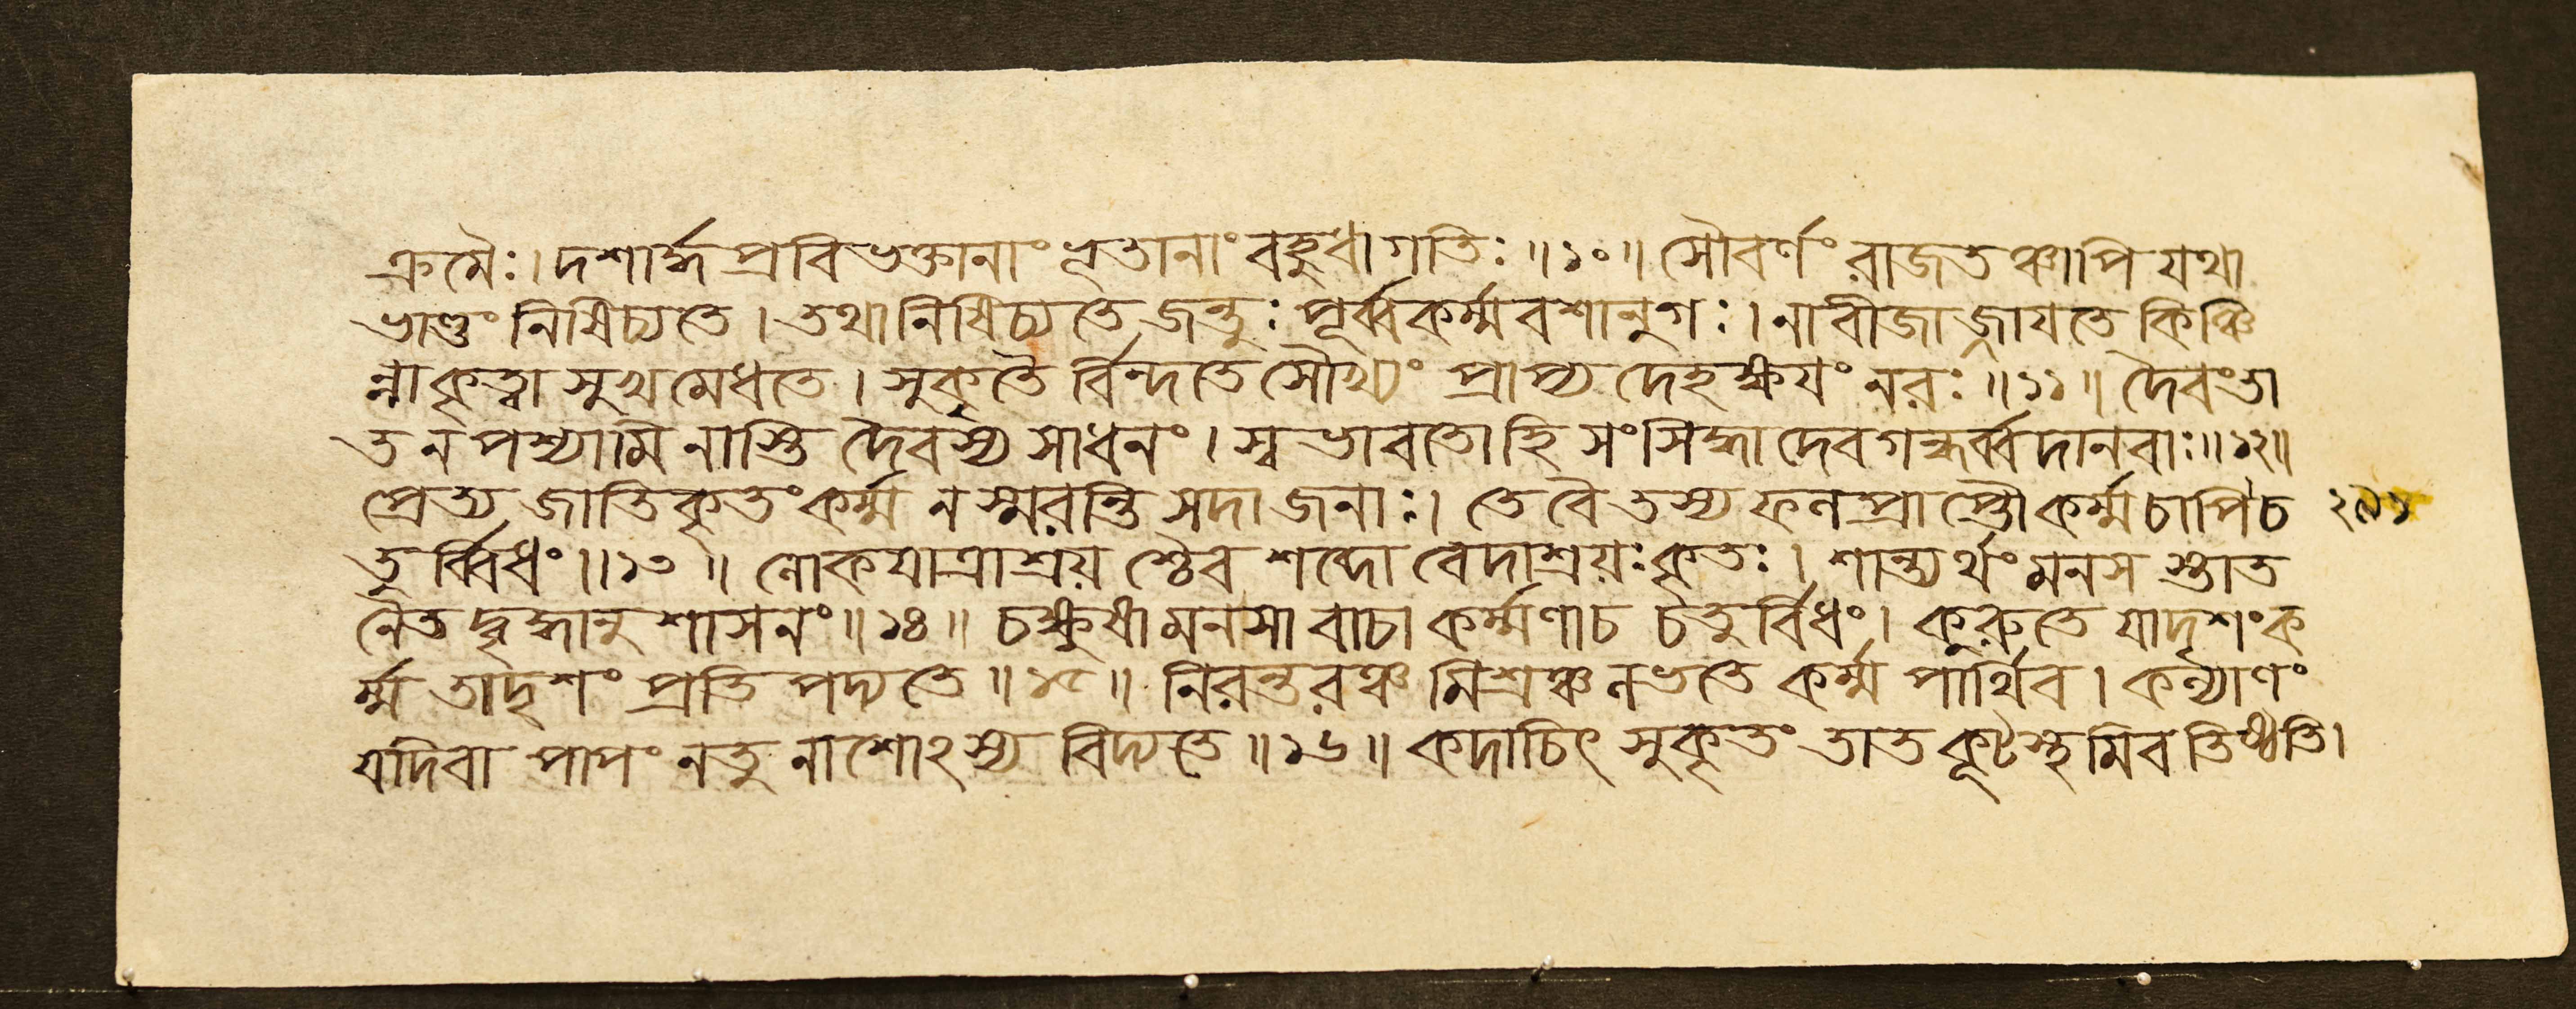 ক্রমৈঃ। দশার্দ্ধপ্রবিভক্তানাং ভূতানাং বহুধা গতিঃ॥১০॥ সৌবর্ণং রাজতঞ্চাপি যথা
ভাণ্ডং নিষিচ্যতে। তথা নিষিচ্যতে জন্তুঃ পূর্ব্বকর্ম্মবশানুগঃ। নাবীজাজ্জায়তে কিঞ্চি
ন্নাকৃত্বা সুখমেধতে। সুকৃতৈ র্বিন্দতে সৌখ্যং প্রাপ্য দেহক্ষয়ং নরঃ॥১১॥ দৈবং তা
ত ন পশ্যামি নাস্তি দৈবস্য সাধনং। স্বভাবতোহি সংসিদ্ধা দেবগন্ধর্ব্বদানবাঃ॥১২॥
প্রেত্য জাতিকৃতং কর্ম্ম ন স্মরন্তি সদা জনাঃ। তে বৈ তস্য ফলপ্রাপ্তৌ কর্ম্ম চাপি চ ২৯১
তুর্ব্বিধং॥১৩॥ লোকযাত্রাশ্রয় শ্চৈব শব্দো বেদাশ্রয়ঃ কৃতঃ। শান্ত্যর্থং মনস স্তাত
নৈত দ্বৃদ্ধানুশাসনং॥১৪॥ চক্ষুষা মনসা বাচা কর্ম্মণা চ চতুর্বিধং। কুরুতে যাদৃশং ক
র্ম্ম তাদৃশং প্রতিপদ্যতে॥১৫॥ নিরন্তরঞ্চ মিশ্রঞ্চ লভতে কর্ম্ম পার্থিব। কল্যাণং
যদিবা পাপং নতু নাশোঽস্য বিদ্যতে॥১৬॥ কদাচিৎ সুকৃতং তাত কূটস্থমিব তিষ্ঠতি।